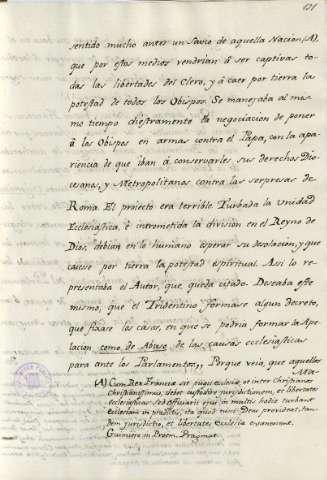 131
sentido mucho antes un Sabio de aquella Nacion (A),
que por estos medios vendrian à ser captivas to-
das las libertades del Clero, y à caer por tierra la
potestad de todos los Obispos. Se manejaba al mis-
mo tiempo diestramente la negociacion de poner
à los Obispos en armas contra el Papa, con la apa-
riencia de que iban à conservarles sus derechos Dio-
cesanos, y Metropolitanos contra las sorpresas de
Roma. El proiecto era terrible. Turbada la Unidad
Ecclesiastica, è intrometida la division en el Reyno de
Dios, debian en lo humano esperar su desolacion, y que
caiese por tierra la potestad espiritual. Assi lo re-
presentaba el Autor, que queda citado. Deseaba este
mismo, que el Tridentino formase algun decreto,
que fixase los casos, en que se podria formar la Ape-
lacion como de Abuso de las causas ecclesiasticas
para ante los Parlamentos,, Porque veia, que aquellos
(A) Cum Rex Franciæ sit
et inter Christianos
Christianissimus, debet custodire jurisdictionem, et libertates
ecclesiasticas. Sed officiarii sui in multis hodie turbant
Ecclesiam in prædictis, ita quod nisi Deus provideat, tan-
dem jurisdictio, et libertates ecclesiæ
in Proem. Pragmat.